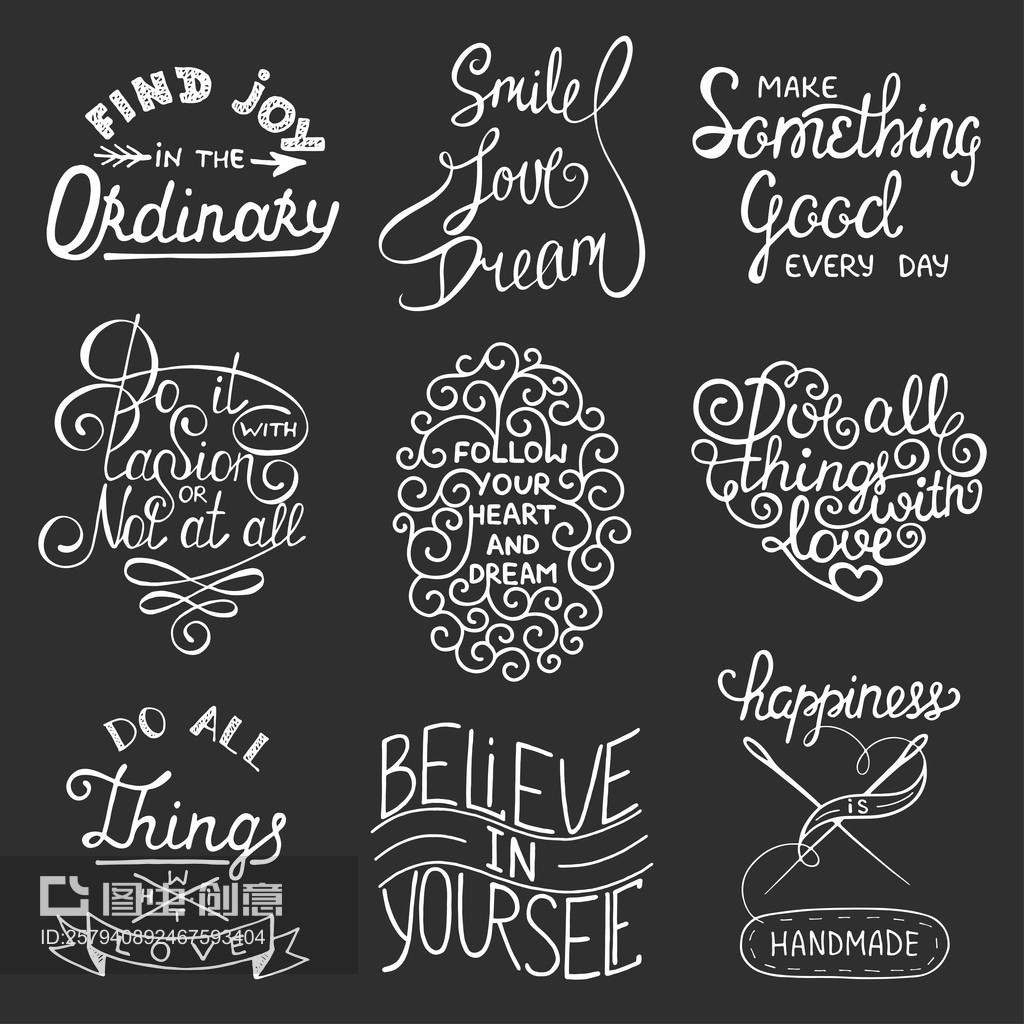 FIND JOY
IN THE
Ordinary
Smile
Love
Dream
MAKE
Something
Good
EVERY DAY
Do it
WITH
Passion
OR
Not at all
FOLLOW
YOUR
HEART
AND
DREAM
Do all
things
with
love
DO ALL
Things
WITH
LOVE
图虫创意
ID:257940892467593404
BELiEVE
IN
YOURSELF
happiness
is
HANDMADE